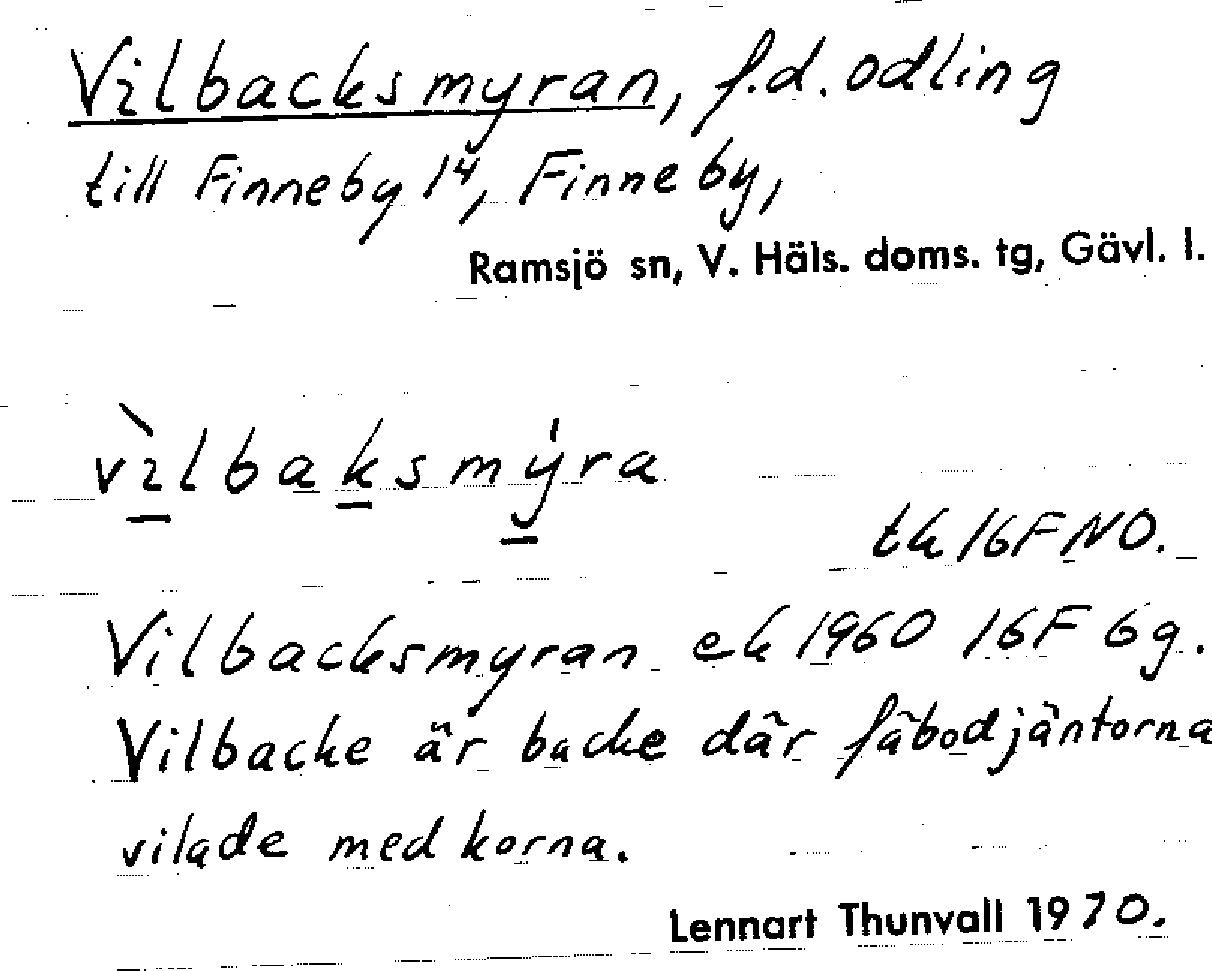 Vilbacksmyran, f.d. odling
till Finneby 1⁴, Finneby,
Ramsjö sn, V. Häls. doms. tg, Gävl. l.
vìlbaksmýra
tk 16F NO.
Vilbacksmyran ek 1960 16F 6g.
Vilbacke är backe där fäbodjäntorna
vilade med korna.
Lennart Thunvall 1970.